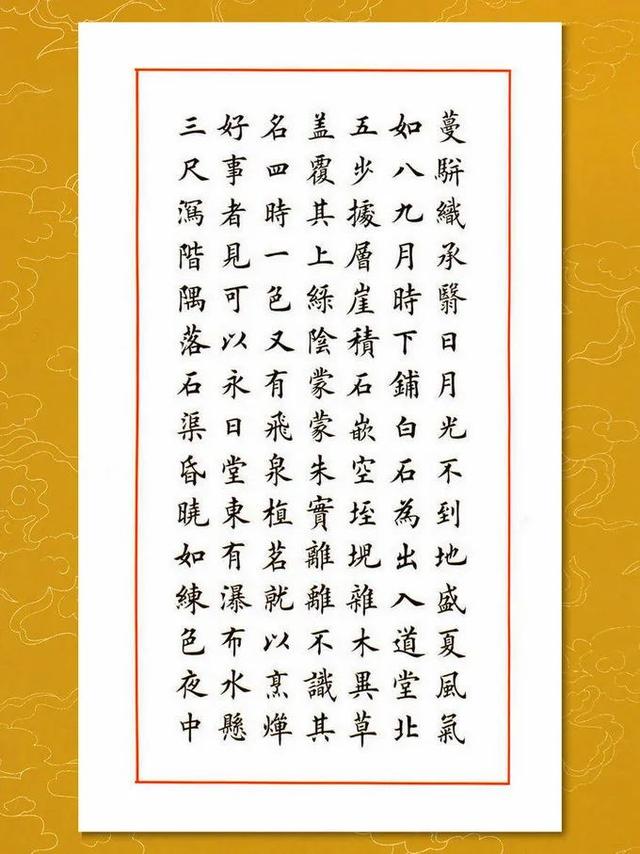 蔓駢織承翳日月光不到地盛夏風氣
如八九月時下鋪白石為出入道堂北
五步據層崖積石嵌空垤堄雜木異草
盖覆其上綠陰蒙蒙朱實離離不識其
名四時一色又有飛泉植茗就以烹燀
好事者見可以永日堂東有瀑布水懸
三尺瀉階隅落石渠昏曉如練色夜中